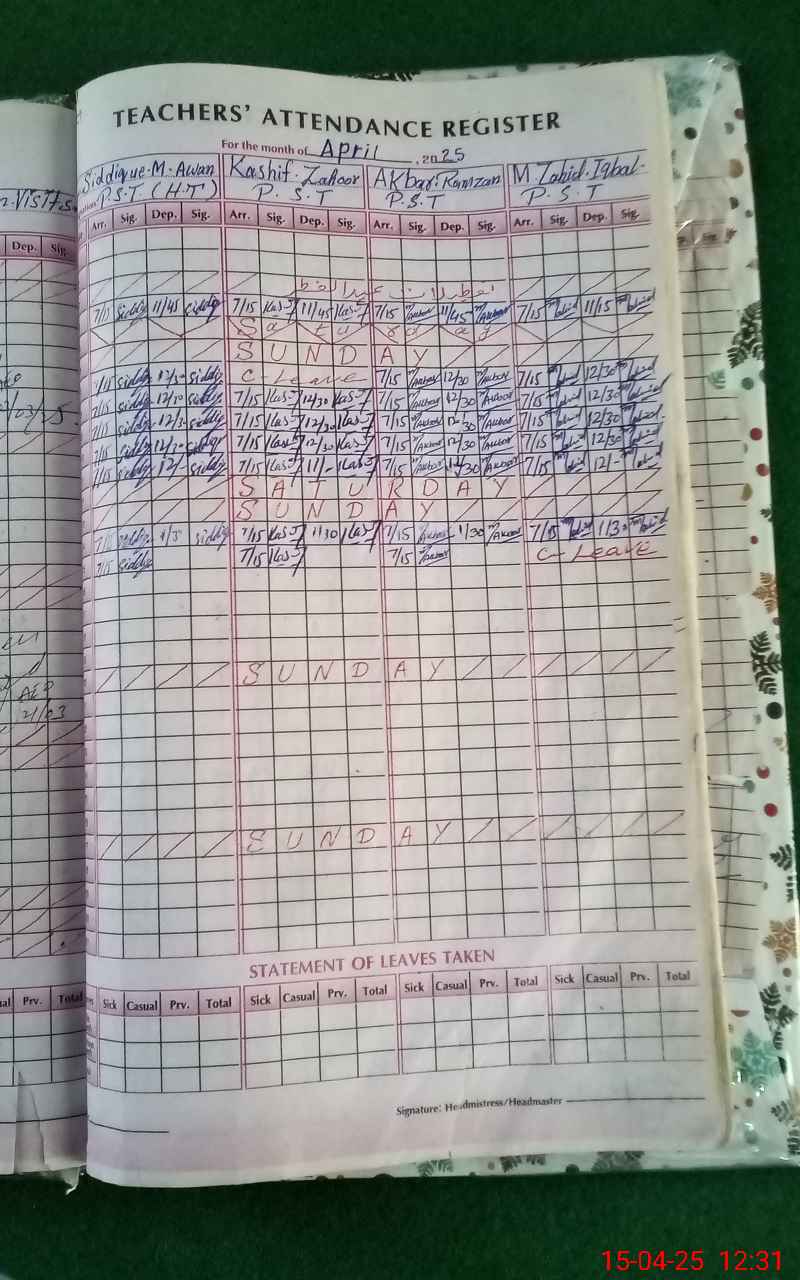 TEACHERS' ATTENDANCE REGISTER
For the month of April, 2025
Siddique.M.Awan Kashif.Zahoor AKbar.Ramzan M.Zahid.Iqbal.
P.S.T (H.T) P.S.T P.S.T P.S.T
Dep. Sig. Arr. Sig. Dep. Sig. Arr. Sig. Dep. Sig. Arr. Sig. Dep. Sig. Arr. Sig. Dep. Sig.
تعطیلات عیدالفطر
7/15 Siddiq 11/45 siddiq 7/15 Kas-J 11/45 Kas-J 7/15 Akbar 11/45 Akbar 7/15 Zahid 11/15 Zahid
Saturday
SUNDAY
7/15 siddiq 12/30 siddiq C-Leave 7/15 Akbar 12/30 Akbar 7/15 Zahid 12/30 Zahid
7/15 siddiq 12/30 siddiq 7/15 Kas-J 12/30 Kas-J 7/15 Akbar 12/30 Akbar 7/15 Zahid 12/30 Zahid
7/15 siddiq 12/30 siddiq 7/15 Kas-J 12/30 Kas-J 7/15 Akbar 12/30 Akbar 7/15 Zahid 12/30 Zahid
7/15 siddiq 12/30 siddiq 7/15 Kas-J 12/30 Kas-J 7/15 Akbar 12/30 Akbar 7/15 Zahid 12/30 Zahid
7/15 siddiq 12/- siddiq 7/15 Kas-J 11/- Kas-J 7/15 Akbar Akbar 7/15 Zahid 12/- Zahid
SATURDAY
SUNDAY
siddiq 1/3 siddiq 7/15 Kas-J 1130 Kas-J 7/15 Akbar 1/30 Akbar 7/15 Zahid 1/30 Zahid
7/15 siddiq 7/15 Kas-J 7/15 Akbar C-Leave
SUNDAY
AEO
21/03
SUNDAY
STATEMENT OF LEAVES TAKEN
Prv. Total Sick Casual Prv. Total Sick Casual Prv. Total Sick Casual Prv. Total Sick Casual Prv. Total
Signature: Headmistress/Headmaster
15-04-25 12:31